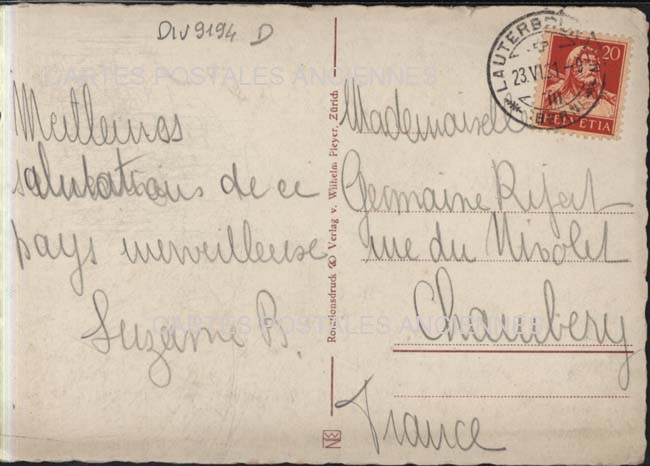 Div 9194 D
CARTES POSTALES ANCIENNES
Meilleures
salutations de ce
pays merveilleuse
Suzanne B.
Rotationsdruck & Verlag v. Wilhelm Pleyer, Zürich
LAUTERBRUNNEN
23.VI.31
20
HELVETIA
Mademoiselle
Germaine
rue du Nivolet
Chambery
France
CARTES POSTALES ANCIENNES